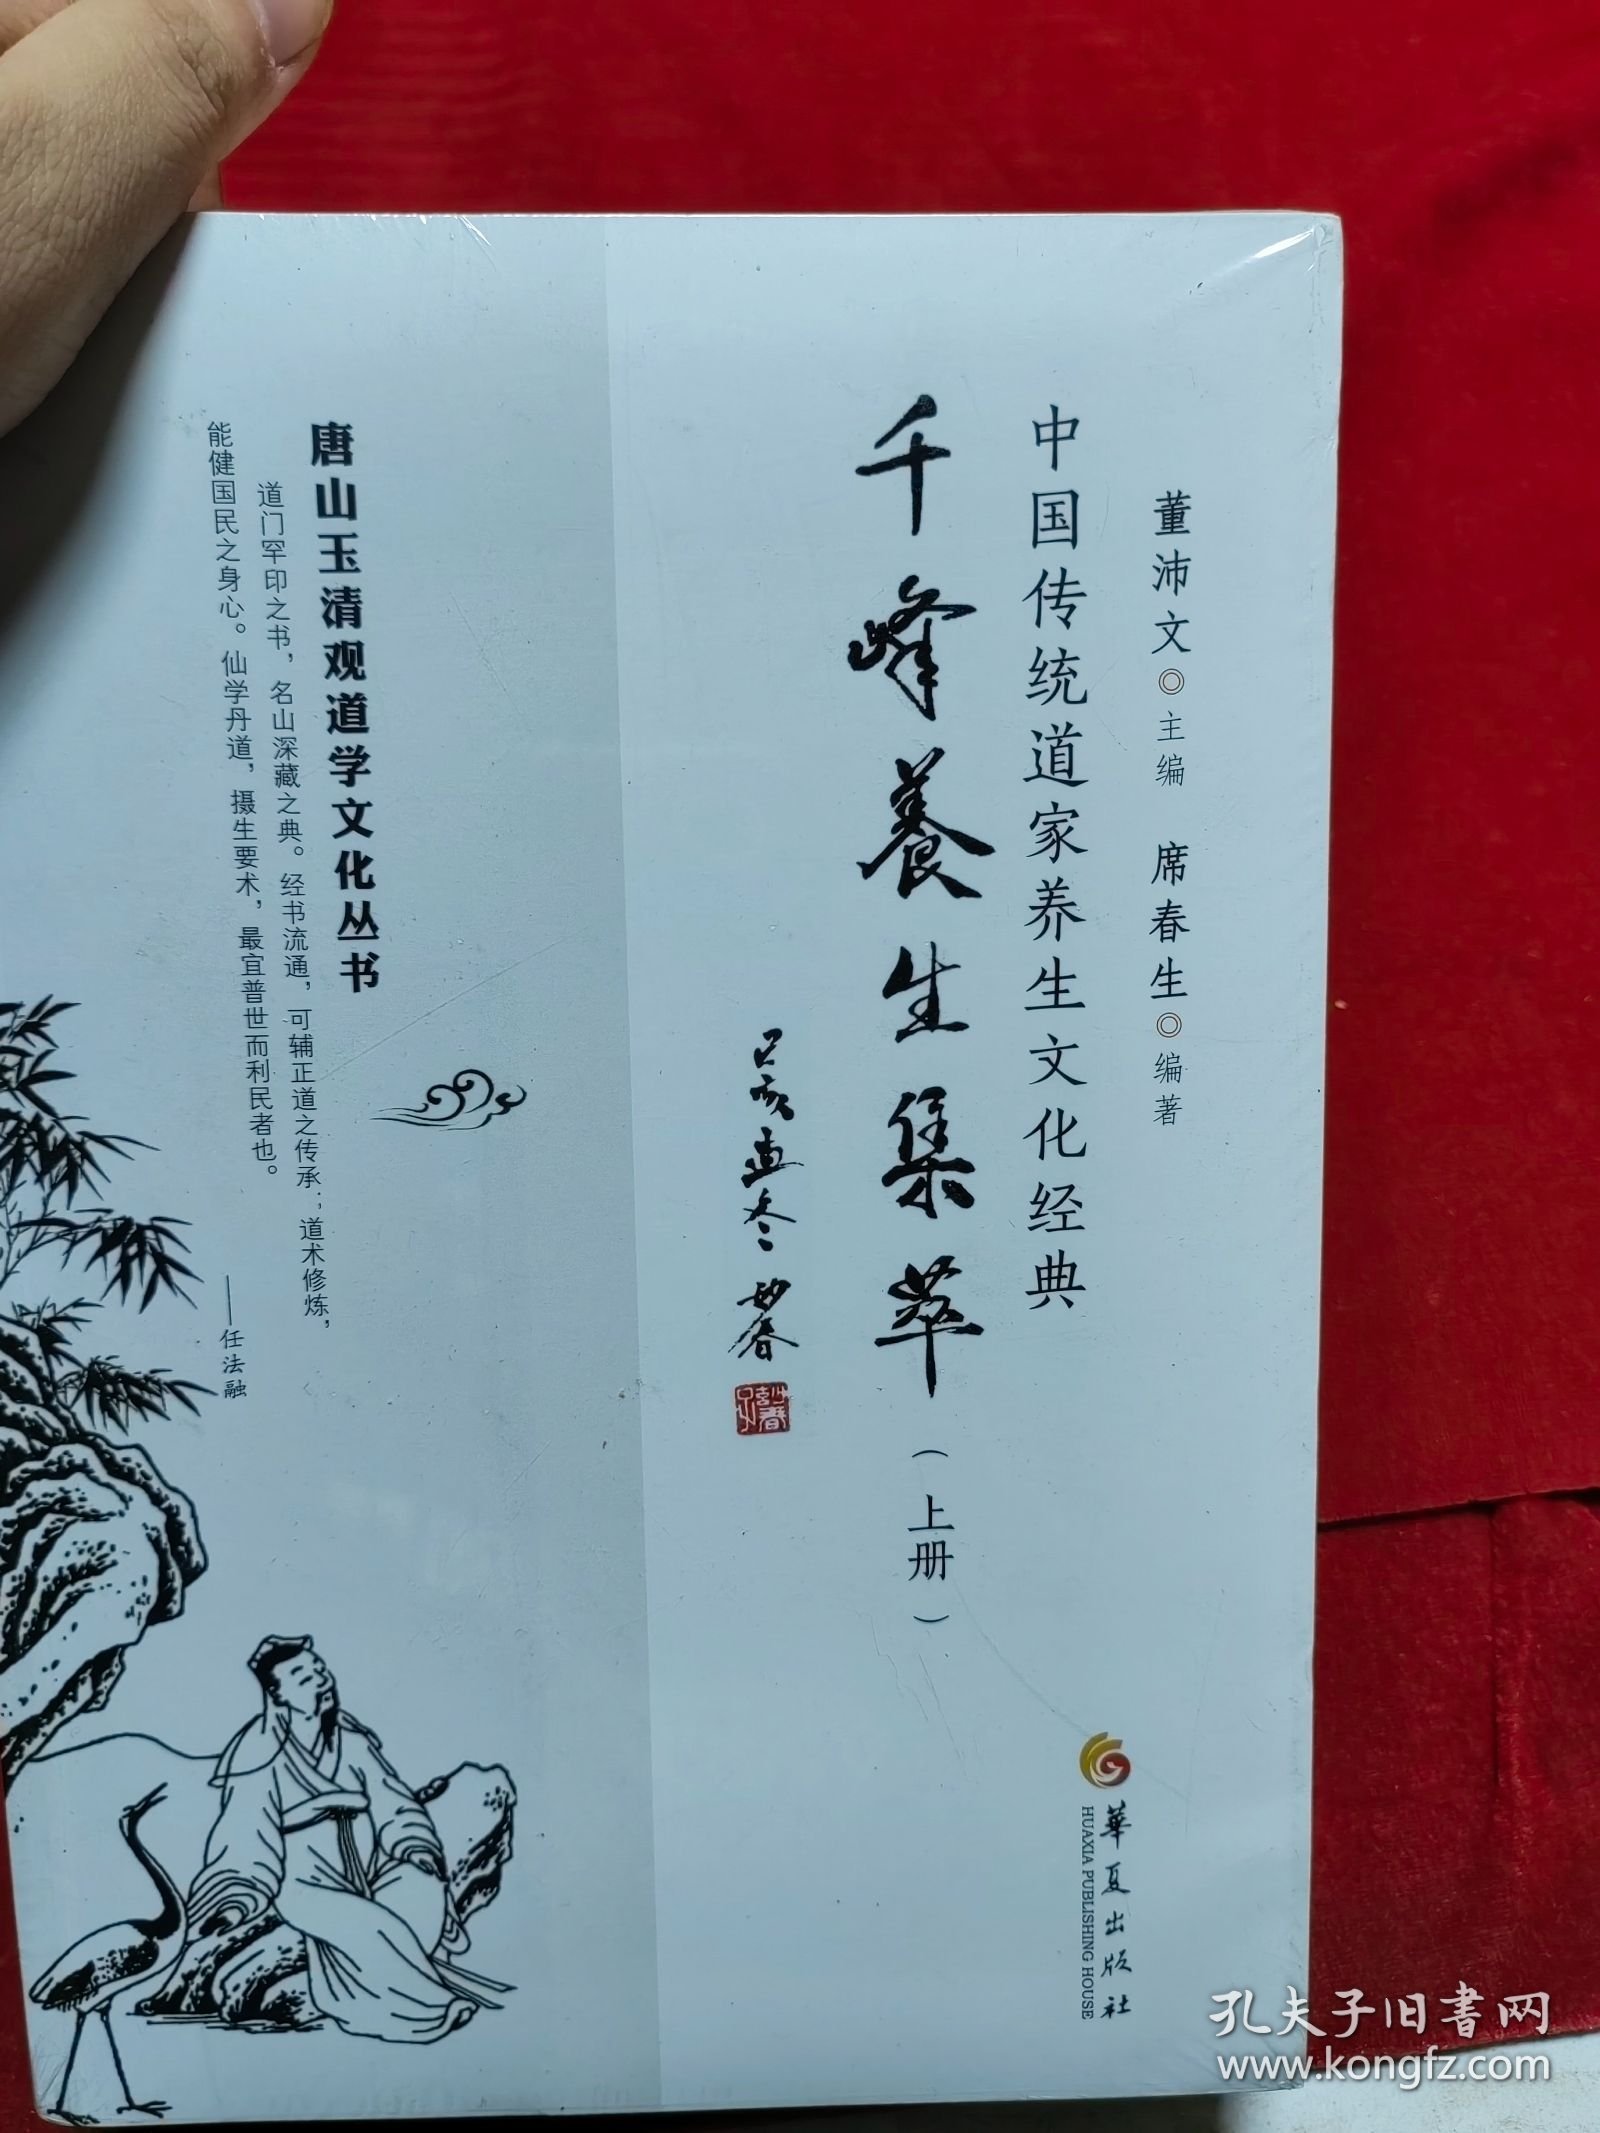 董沛文◎主编 席春生◎编著
中国传统道家养生文化经典
千峰養生集萃（上册）
己亥孟冬 妙春
華夏出版社
HUAXIA PUBLISHING HOUSE
唐山玉清观道学文化丛书
道门罕印之书，名山深藏之典。经书流通，可辅正道之传承；道术修炼，
能健国民之身心。仙学丹道，摄生要术，最宜普世而利民者也。
——任法融
孔夫子旧書网
www.kongfz.com